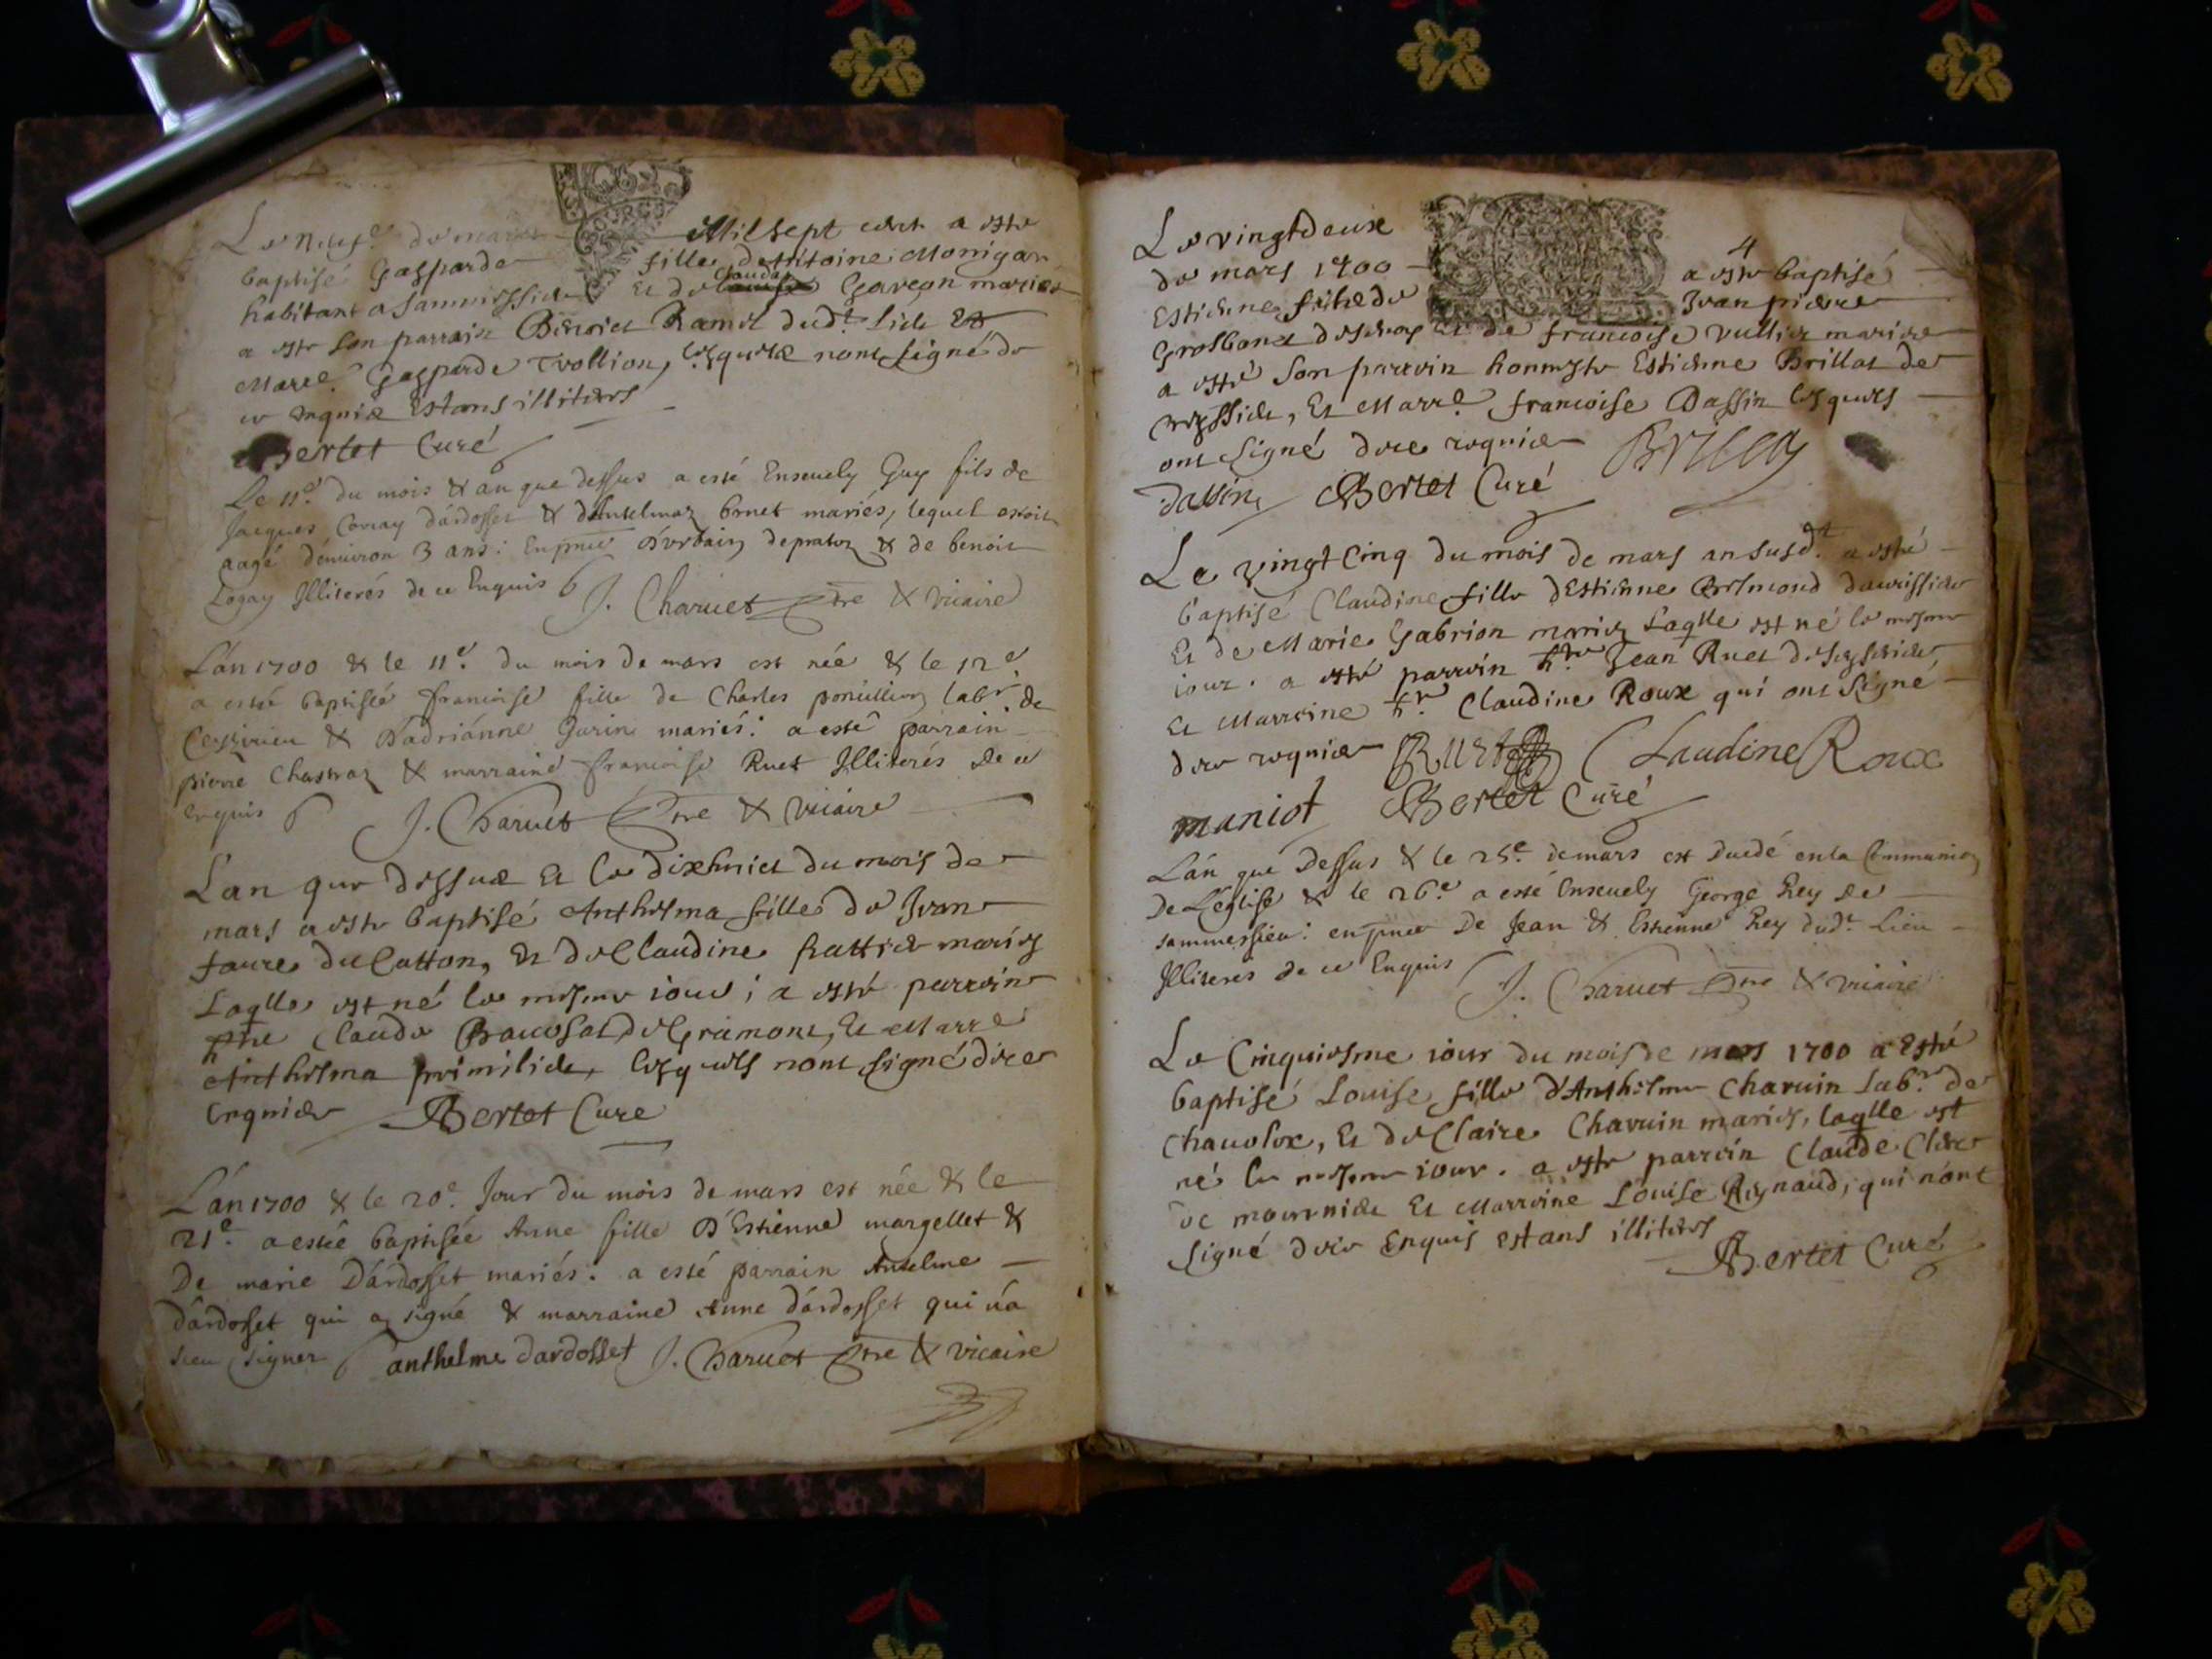 Le neuf.e de mars Mil sept cent a esté
baptisé Gasparde fille dAntoine Monigan
habitant a Et de Clauda Garcon mariés
a esté son parrain Benoict Ramel dud.t lieu Et
Marr.e Gasparde Tvollion, lesquels nont signé de
ce enquis Estans illiterés
Bertet Curé
Le 11.e du mois & an que dessus a esté Enseuely Guy fils de
Jacques dárdosset & dAntelmaz brnet mariés, lequel estoit
aagé dénuiron 3 ans: En pnce D'Vrbain depraton & de benoit
Logay Illiterés de ce Enquis J. Charuet Ptre & Vicaire
Lán 1700 & le 11.e du mois de mars est née & le 12e
a esté baptisée francoise fille de Charles ponullion labr. de
Ceyzirieu & D'adriánne Gurin mariés: a esté parrain
pierre Chastraz & marraine francoise Ruet Illiterés De ce
Enquis J. Charuet Ptre & Vicaire
L'an que dessus Et le dixhuict du mois de
mars a esté baptisé Anthelma fille de Jean
faure du Catton, Et de Claudine frattier mariés
Laqlle est né le mesme iour; a esté parrain
hte Claude de Gramont, Et Marre
Anthelma primilieu, lesquels nont signé de ce
Enquis Bertet Cure
Lán 1700 & le 20.e Jour du mois de mars est née & le
21.e a estée baptisée Anne fille D'Estienne margellet &
De marie Dárdosset mariés. a esté parrain Antelme
Dárdosset qui a signé & marraine Anne dárdosset qui ná
sceu signer anthelme dardosset J. Charuet Ptre & vicaire
Le vingtdeux
4
de mars 1700 a esté baptisé
Estienne fils de Jean pierre
Grosbonet et de francoise Vullier mariés
a esté son parrain honneste Estienne Brillat de
Et Marr.e francoise Dassin lesquels
ont signé de ce requis Brillat
Dassin Bertet Curé
Le vingt Cinq du mois de mars an susd.t a esté
baptisé Claudine fille dEstienne Bertmond
Et de Marie Gabrion mariez Laqlle est né le mesme
iour. a esté parrain h.te Jean Ruet
Et Marraine h.te Claudine Roux qui ont signé
de ce requis Ruet Claudine Roux
maniot Bertet Curé
Lán que Dessus & le 25.e de mars est Decedé en la Communion
De Léglise & le 26.e a esté Enseuely George Rey De
sammessieu: en pnce De Jean & Estienne Rey dud.t Lieu
Illiteres de ce Enquis J. Charuet Ptre & vicaire
Le Cinquiesme iour du mois de mars 1700 a Esté
baptisé Louise fille d'Anthelme Charuin lab.r de
Chauolox, Et de Claire Charuin mariés, laqlle est
né le mesme iour. a esté parrain Claude Clerc
de Et Marraine Louise Reynaud, qui nónt
signé de ce Enquis estans illiterés
Bertet Curé